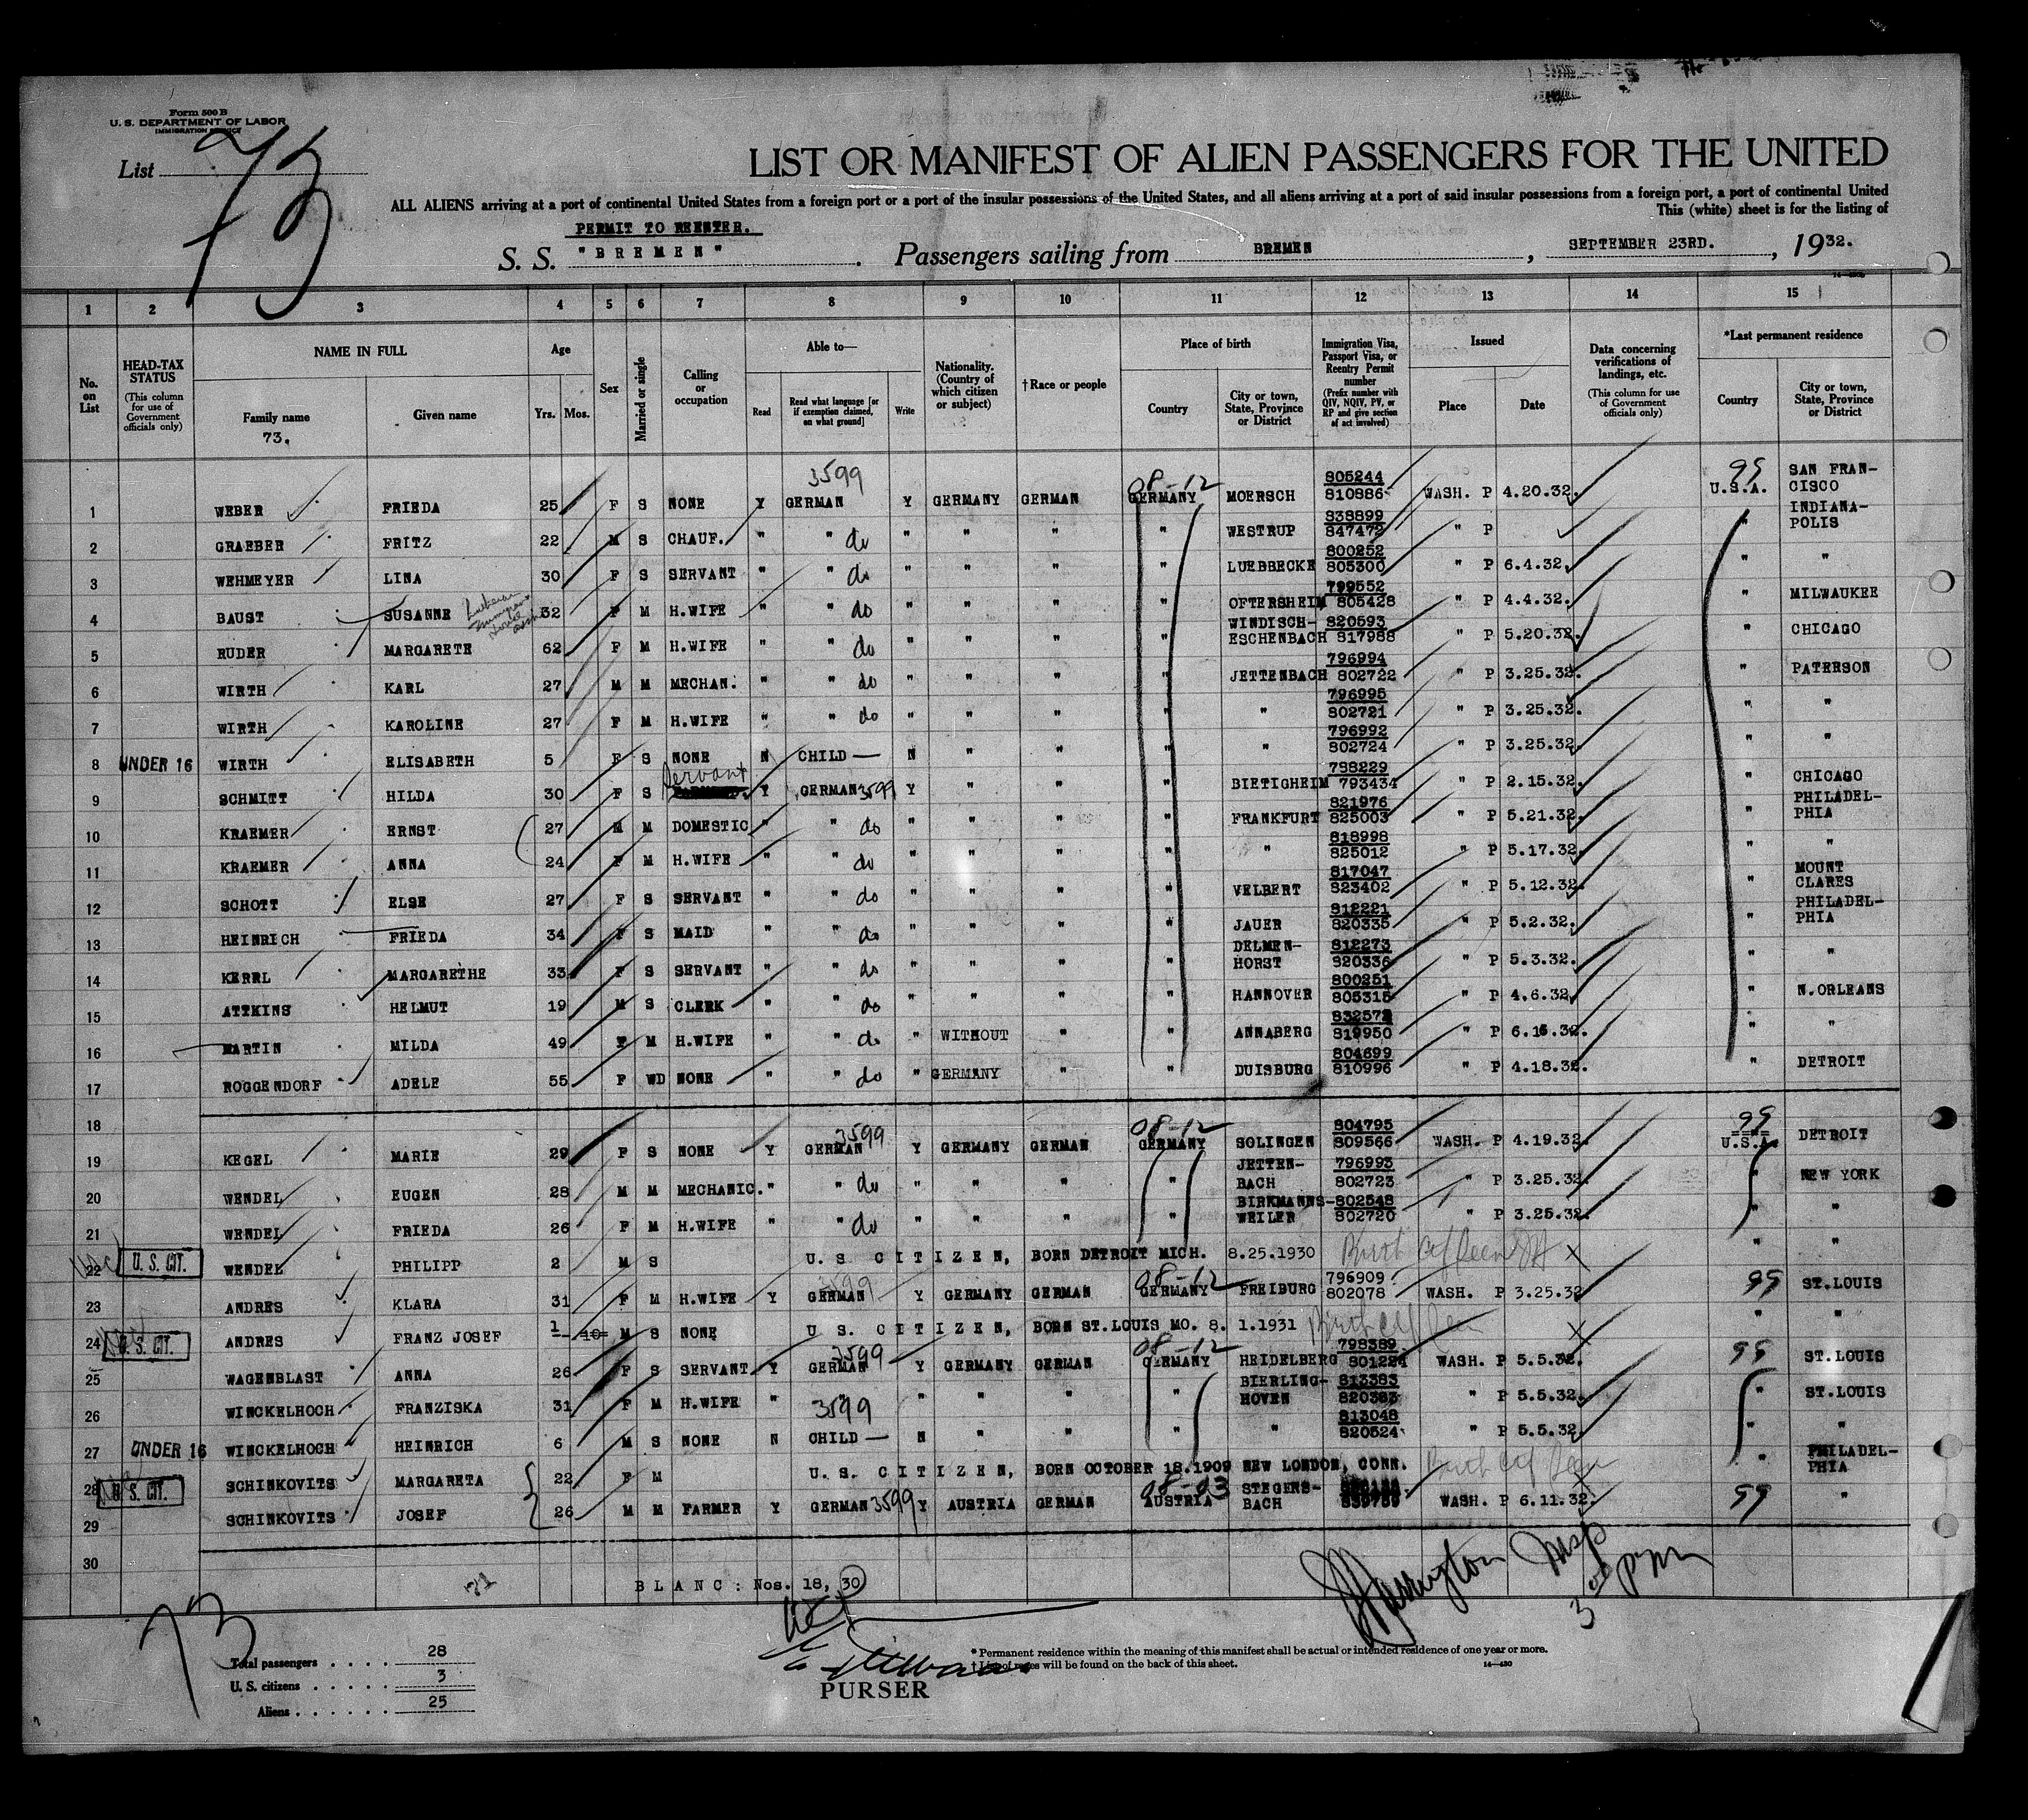 Form 500 B
U. S. DEPARTMENT OF LABOR
IMMIGRATION SERVICE
List 73
LIST OR MANIFEST OF ALIEN PASSENGERS FOR THE UNITED
ALL ALIENS arriving at a port of continental United States from a foreign port or a port of the insular possessions of the United States, and all aliens arriving at a port of said insular possessions from a foreign port, a port of continental United
This (white) sheet is for the listing of
PERMIT TO REENTER.
S. S. "BREMEN". Passengers sailing from BREMEN, SEPTEMBER 23RD., 1932.
1 2 3 4 5 6 7 8 9 10 11 12 13 14 15
No. on List
HEAD-TAX STATUS (This column for use of Government officials only)
NAME IN FULL
Family name
73.
Given name
Age
Yrs. Mos.
Sex
Married or single
Calling or occupation
Able to—
Read
Read what language [or if exemption claimed, on what ground]
Write
Nationality. (Country of which citizen or subject)
†Race or people
Place of birth
Country
City or town, State, Province or District
Immigration Visa, Passport Visa, or Reentry Permit number (Prefix number with QIV, NQIV, PV, or RP and give section of act involved)
Issued
Place
Date
Data concerning verifications of landings, etc. (This column for use of Government officials only)
*Last permanent residence
Country
City or town, State, Province or District
1 WEBER FRIEDA 25 F S NONE Y GERMAN 3599 Y GERMANY GERMAN 08-12 GERMANY MOERSCH 805244 810886 WASH. P 4.20.32. 99 U.S.A. SAN FRANCISCO
2 GRAEBER FRITZ 22 M S CHAUF. " " do " " " " WESTRUP 838899 847472 " P " INDIANAPOLIS
3 WEHMEYER LINA 30 F S SERVANT " " do " " " " LUEBBECKE 800252 805300 " P 6.4.32. " "
4 BAUST SUSANNE 32 F M H.WIFE " " do " " " " OFTERSHEIM 799552 805428 " P 4.4.32. " MILWAUKEE
5 RUDER MARGARETE 62 F M H.WIFE " " do " " " " WINDISCH-ESCHENBACH 820593 817988 " P 5.20.32. " CHICAGO
6 WIRTH KARL 27 M M MECHAN. " " do " " " " JETTENBACH 796994 802722 " P 3.25.32. " PATERSON
7 WIRTH KAROLINE 27 F M H.WIFE " " do " " " " " 796995 802721 " P 3.25.32. " "
8 UNDER 16 WIRTH ELISABETH 5 F S NONE N CHILD — N " " " " 796992 802724 " P 3.25.32. " "
9 SCHMITT HILDA 30 F S Servant Y GERMAN 3599 Y " " " BIETIGHEIM 788229 793434 " P 2.15.32. " CHICAGO
10 KRAEMER ERNST 27 M M DOMESTIC " " do " " " " FRANKFURT 821976 825003 " P 5.21.32. " PHILADELPHIA
11 KRAEMER ANNA 24 F M H.WIFE " " do " " " " " 818998 825012 " P 5.17.32. " "
12 SCHOTT ELSE 27 F S SERVANT " " do " " " " VELBERT 817047 823402 " P 5.12.32. " MOUNT CLARES
13 HEINRICH FRIEDA 34 F S MAID " " do " " " " JAUER 812221 820335 " P 5.2.32. " PHILADELPHIA
14 KERRL MARGARETHE 33 F S SERVANT " " do " " " " DELMENHORST 812273 820336 " P 5.3.32. " "
15 ATTKINS HELMUT 19 M S CLERK " " do " " " " HANNOVER 800251 805315 " P 4.6.32. " N.ORLEANS
16 MARTIN MILDA 49 F M H.WIFE " " do " WITHOUT " " ANNABERG 832572 819950 " P 6.15.32. " "
17 ROGGENDORF ADELE 55 F WD NONE " " do " GERMANY " " DUISBURG 804699 810996 " P 4.18.32. " DETROIT
18
19 KEGEL MARIE 29 F S NONE Y GERMAN 3599 Y GERMANY GERMAN 08-12 GERMANY SOLINGEN 804795 809566 WASH. P 4.19.32. 99 U.S.A. DETROIT
20 WENDEL EUGEN 28 M M MECHANIC. " " do " " " " JETTENBACH 796993 802723 " P 3.25.32. " NEW YORK
21 WENDEL FRIEDA 26 F M H.WIFE " " do " " " " BIRKMANNSWEILER 802548 802720 " P 3.25.32. " "
22 U. S. CIT. WENDEL PHILIPP 2 M S U. S. CITIZEN, BORN DETROIT MICH. 8.25.1930 Birth Cef Seen " "
23 ANDRES KLARA 31 F M H.WIFE Y GERMAN 3599 Y GERMANY GERMAN 08-12 GERMANY FREIBURG 796909 802078 WASH. P 3.25.32 99 ST.LOUIS
24 U. S. CIT. ANDRES FRANZ JOSEF 1 10 M S NONE U. S. CITIZEN, BORN ST.LOUIS MO. 8. 1.1931 Birth Cef Seen " "
25 WAGENBLAST ANNA 26 F S SERVANT Y GERMAN 3599 Y GERMANY GERMAN 08-12 GERMANY HEIDELBERG 798389 801224 WASH. P 5.5.32. 99 ST.LOUIS
26 WINCKELHOCH FRANZISKA 31 F M H.WIFE " " 3599 " " " " BIERLINGHOVEN 813383 820383 " P 5.5.32. " ST.LOUIS
27 UNDER 16 WINCKELHOCH HEINRICH 6 M S NONE N CHILD — N " " " " 813048 820524 " P 5.5.32. " "
28 U. S. CIT. SCHINKOVITS MARGARETA 22 F M U. S. CITIZEN, BORN OCTOBER 18.1909 NEW LONDON, CONN. Birth Cef Seen " PHILADELPHIA
29 SCHINKOVITS JOSEF 26 M M FARMER Y GERMAN 3599 Y AUSTRIA GERMAN 08-03 AUSTRIA STEGENSBACH WASH. P 6.11.32. 99 "
30
BLANC: Nos. 18, 30
73
Total passengers . . . . 28
U. S. citizens . . . . . 3
Aliens . . . . . . 25
PURSER
* Permanent residence within the meaning of this manifest shall be actual or intended residence of one year or more.
† List of races will be found on the back of this sheet.